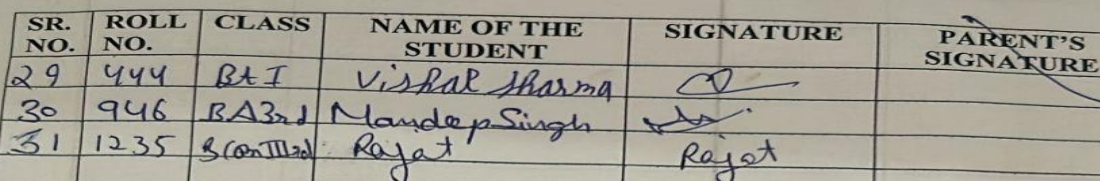 SR. NO. ROLL NO. CLASS NAME OF THE STUDENT SIGNATURE PARENT'S SIGNATURE
29 444 BA I Vishal Sharma
30 946 BA3rd Mandeep Singh
31 1235 BComIIIrd Rajat Rajat